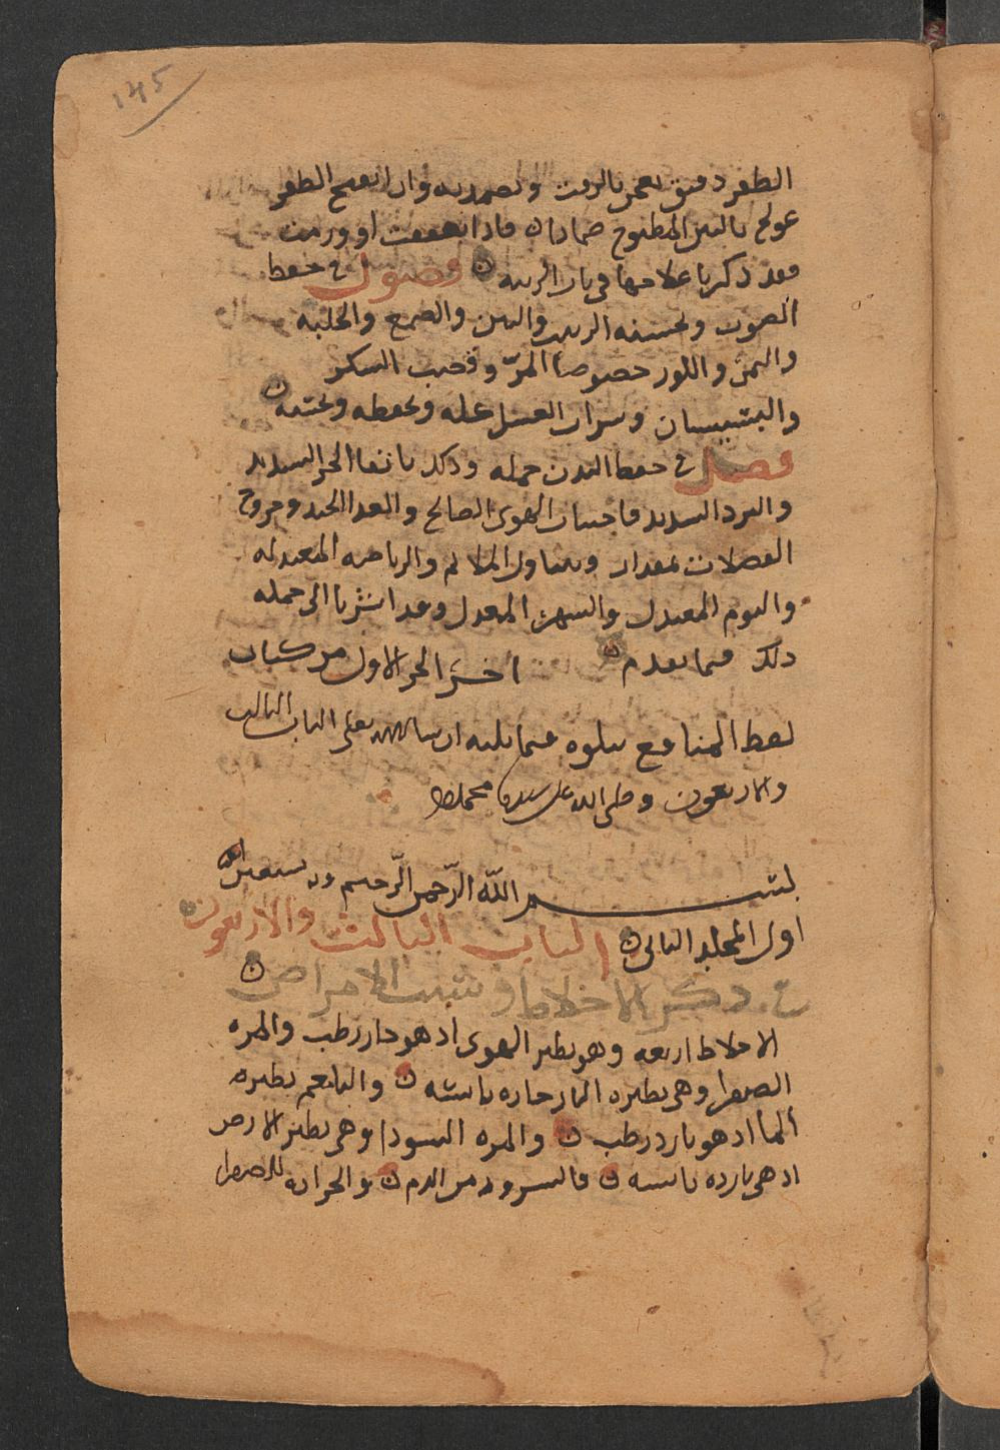 ١٢٥
الظفر دقيق يعجن بالزفت ويضمد به وان انفسح الظفر
عولج بالتين المطبوخ ضمادا فاذا او ورمت
فقد ذكرنا علاجها في باب الزينه فصول في حفظ
الصوت ويحسنه الزبيب والتين والصمغ والحلبه
والتمر واللوز خصوصا المر وقصب السكر
والبستان وشراب العسل عله ويحفظه ويحسنه
فصل في حفظ البدن جمله وذلك باتقا الحر الشديد
والبرد الشديد فاجتناب الهوى الصالح والغدا الجيد وخروج
الفضلات بمقدار ويتناول الملائم والرياضه المعتدله
والنوم المعتدل والسهر المعتدل وقد اشرنا الى جمله
ذلك فيما تقدم اخر الجز الاول من كتاب
لقط المنافع يتلوه فيما يليه ان شا الله تعلى الباب الثالث
والاربعون وصلى الله على سيدنا محمد
بسم الله الرحمن الرحيم وبه نستعين
اول المجلد الثاني الباب الثالث والاربعون
في ذكر الاخلاط وتثبت الامراض
الاخلاط اربعه وهو نظير الهوى اذ هو حار رطب والمره
الصفرا وهي نظيره النار حاره يابسه والبلغم نظيره
الما اذ هو بارد رطب والمره السودا وهي نظير الارض
اذ هي بارده يابسه فالسرور من الدم والحراره للصفرا